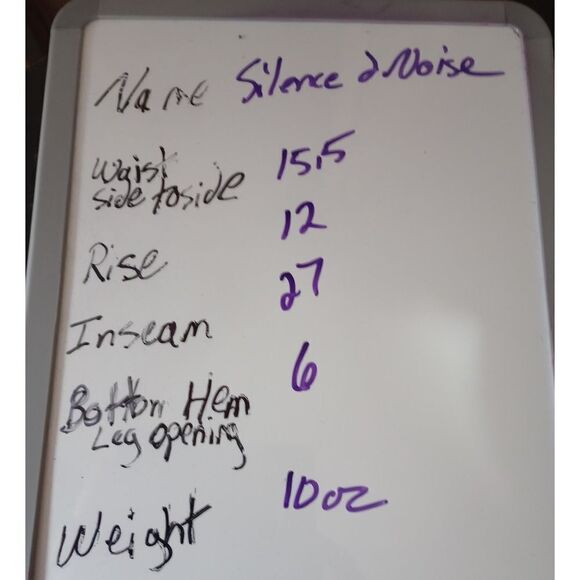 Name Silence & Noise
Waist 15.5
side to side
Rise 12
Inseam 27
Bottom Hem 6
Leg opening
Weight 10 oz